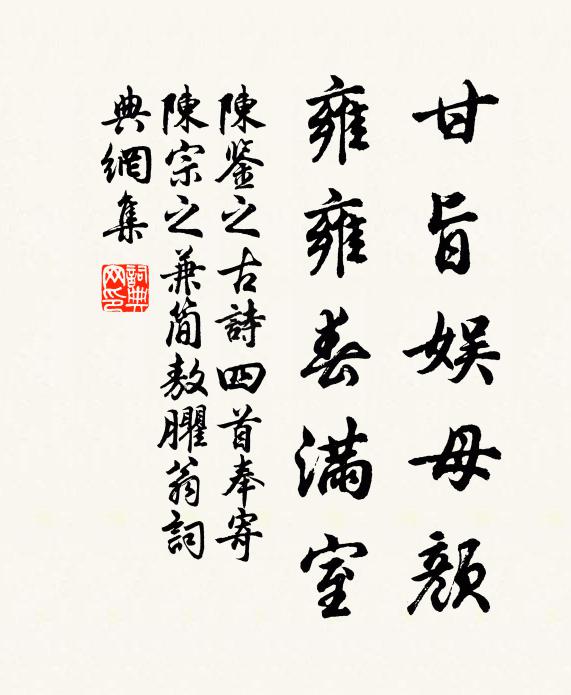 甘旨娱母顏
雍雍春滿室
陳鉴之古詩四首奉寄
陳宗之兼簡敖臞翁詞
典網集
詞典网印